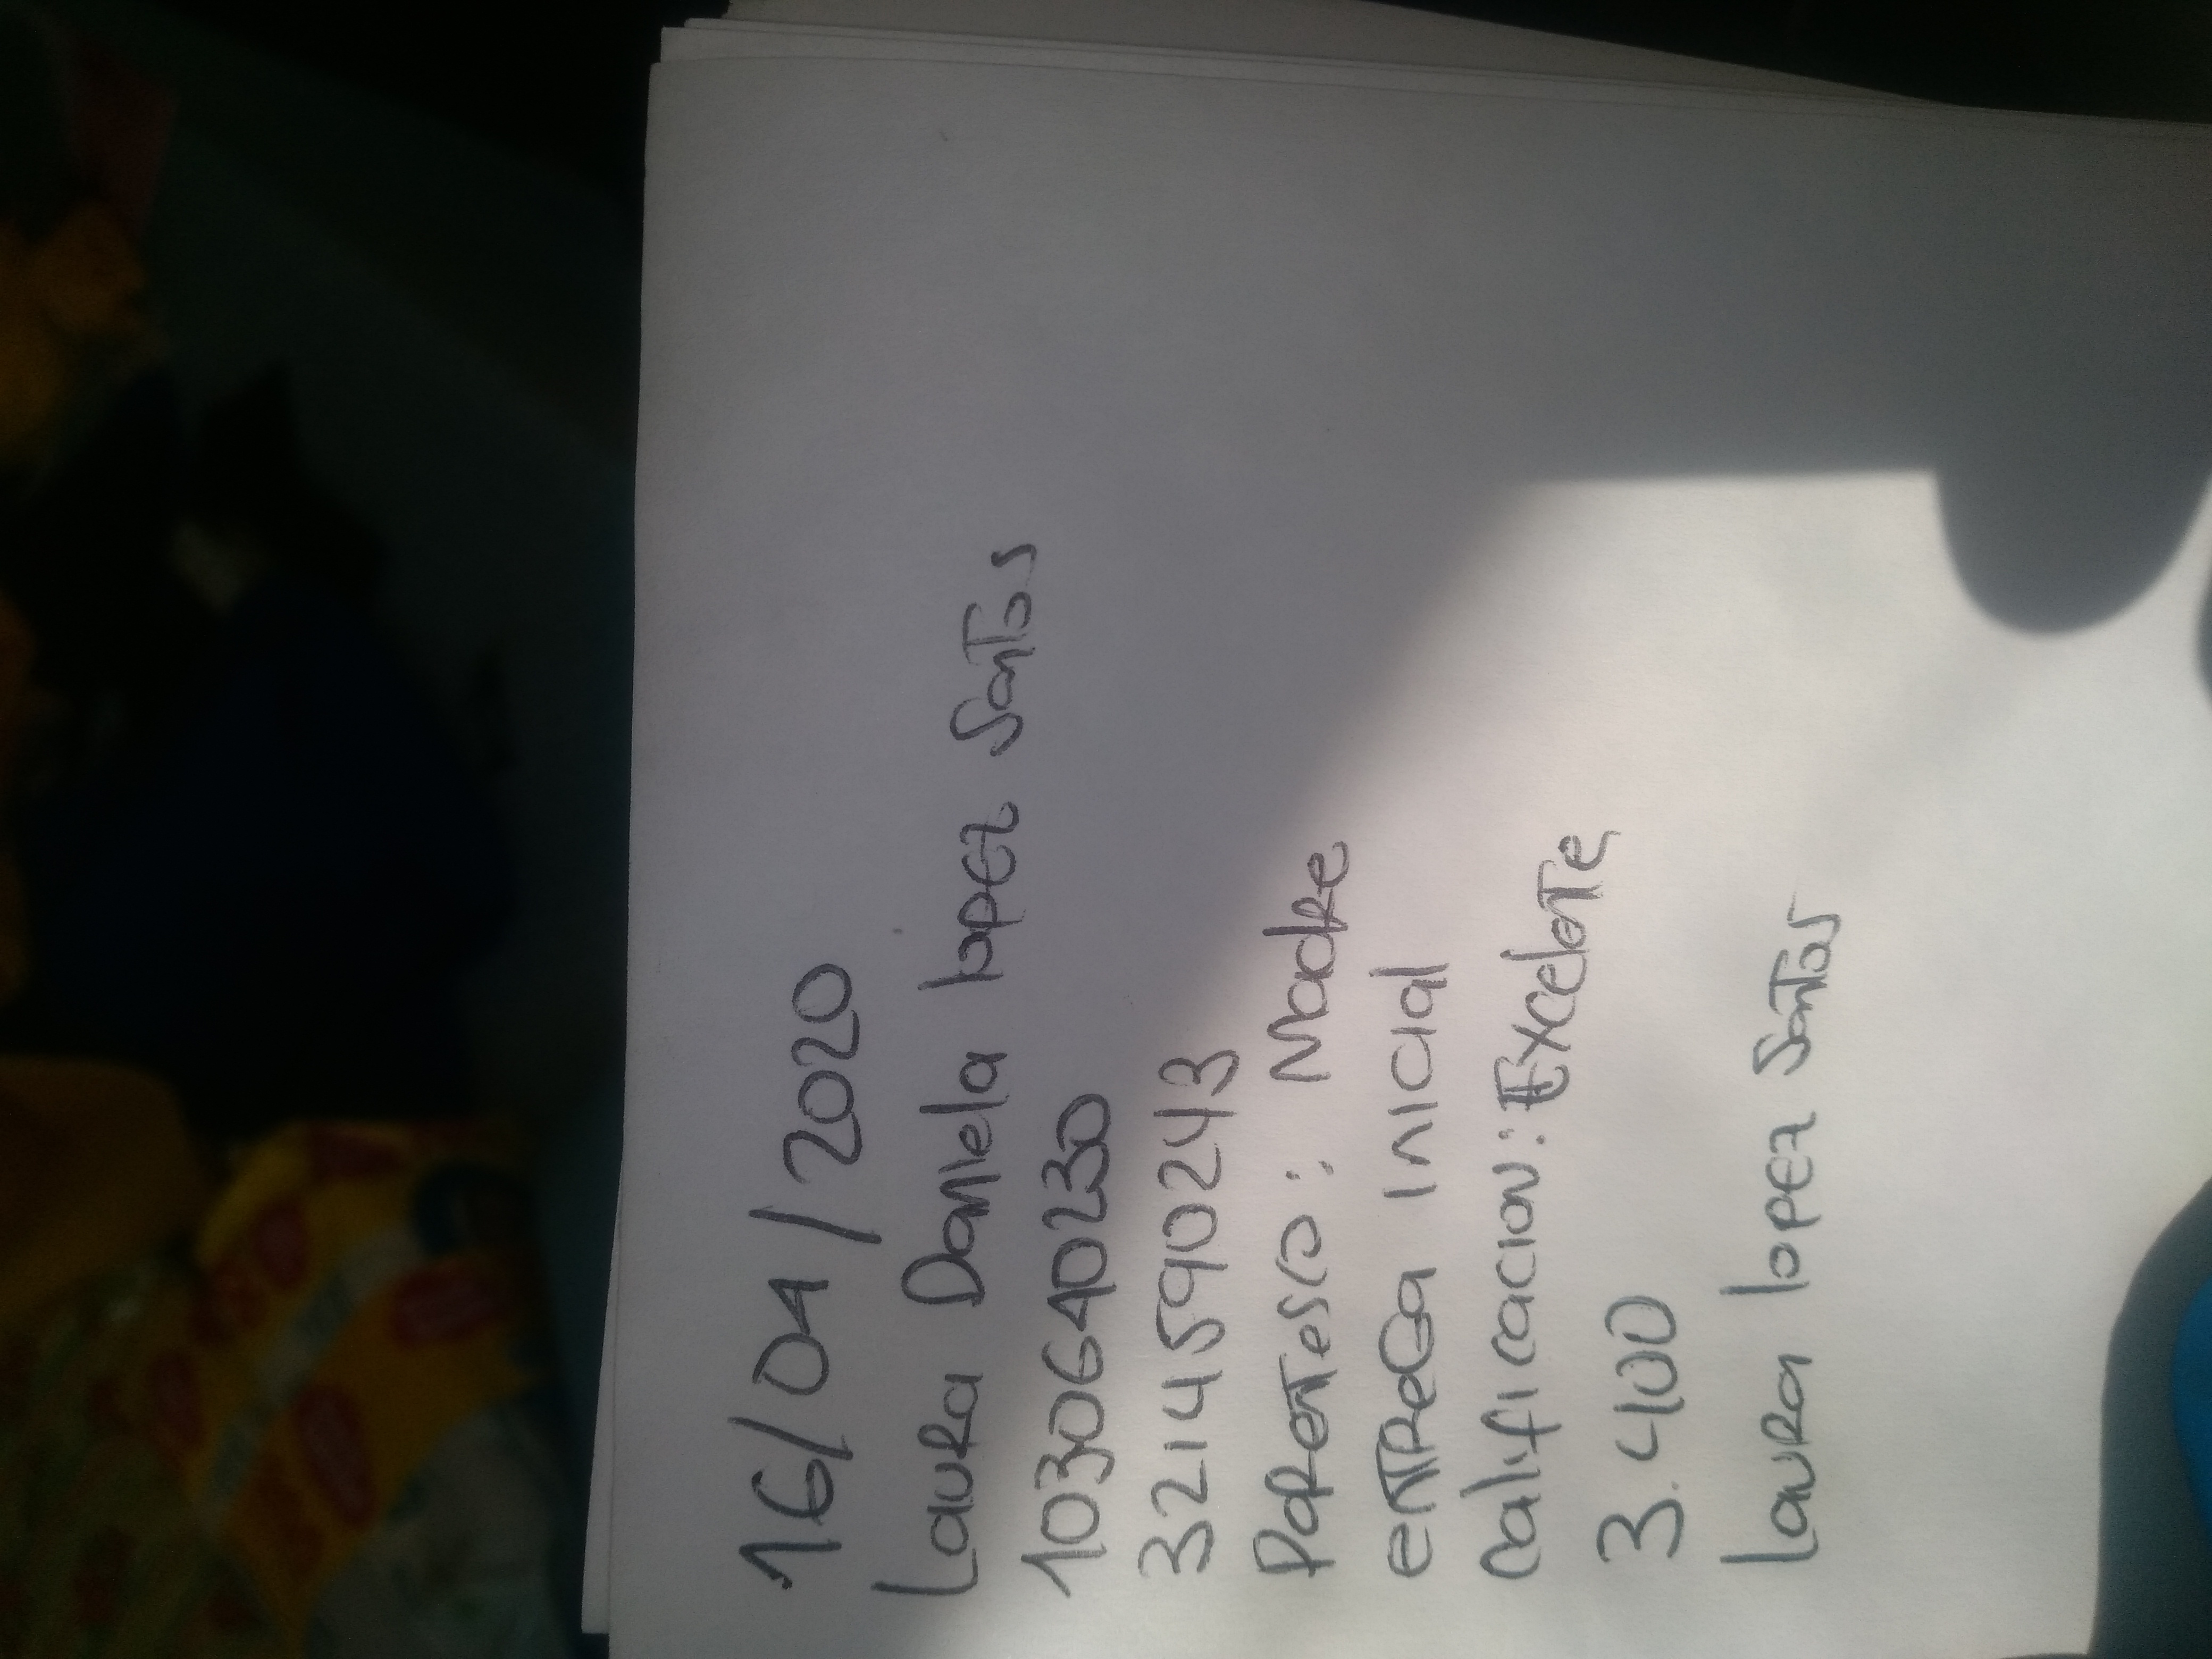 16/04/2020
Laura Daniela lopez Santos
1030640230
3214590243
Parentesco: Madre
entrega inicial
calificacion: Excelente
3.400
Laura lopez Santos